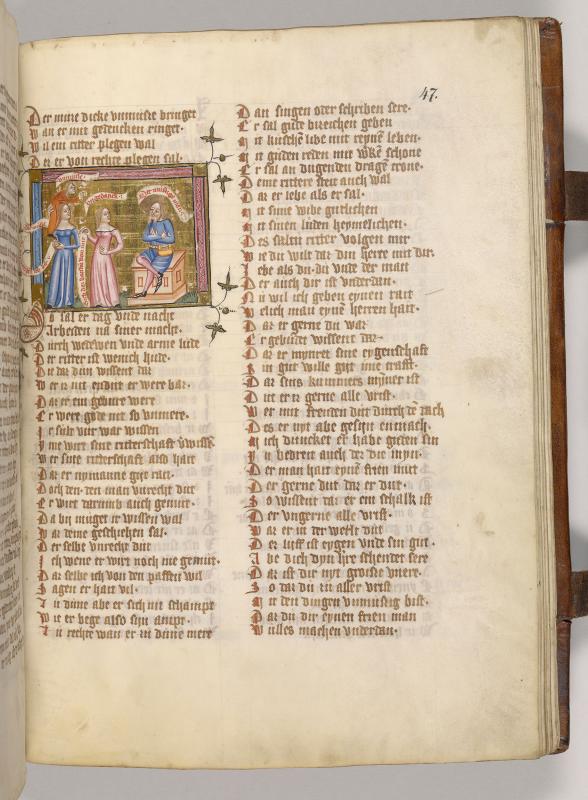 47.
Der mine dicke vnmuse bringet
Wan er mit gedencken ringet.
Wil ein ritter plegen wal
Des er von rechte plegen sal.
So sal er dag vnde nacht
Arbeiden na siner macht.
Durch wedewen vnde arme lude
Der ritter ist wenich hude.
Die daz dun wissent daz
Wer is nit enduit er were baz.
Daz er ein gebure were
Er were gode nit so vnmere.
Ir sult vur war wissen
wer sine ritterschaft also hait
Daz er nymanne git rait.
Doch den den man vnrecht duit
Er wirt darumb auch gemuet.
Da bij muget ir wissen wal
Waz deme geschiehen sal.
Der selbe vnrecht duit
Ich wene er wirt noch me gemuit.
Daz selbe ich von den paffen wil
Sagen er hait vil.
zu dune abe er sich nit schampt
Wie er bege also syn ampt.
zu rechte wan er zu dune mere
Dan singen oder schriben sere.
Er sal gude bizeichen geben
Mit kuschem libe mit reyme leben.
Mit guden reden mit werken schone
Er sal an dugenden dragen crone.
Deme rittere steit auch wal
Daz er lebe als er sal.
Mit sime wibe gutlichen
Mit sinen luden heymelichen.
Des saltu ritter volgen mir
Wie du wilt daz din herre mit dir.
lebe als du die vnde der matt
Der auch dir ist vnderdan.
Nu wil ich geben eynen rait
Welich man eynen herren hait.
Daz er gerne du waz
Er gebudet wissent daz
Daz er mynret sine eygenschaft
Ein gut wille git ime crafft.
Daz sins kummers mynner ist
Duit ers gerne alle vrist.
Wer mit freuden duit durch den sach
Des er nyt abe gesin enmach.
Mich duncket er habe guden sin
Er man hait eynen frien mut
Der gerne duit daz er duit.
So wissent daz er ein schalk ist
Der vngerne alle vrist.
Waz er in der werlt duit
Der liff ist eygen vnde sin gut.
Abe dich dyn here schendet sere
Daz ist dir nyt groisse vnere.
So daz du zu aller vrist
An den dingen vnmusig bist.
Daz du dir eynen frien man
Wulles machen vnderdan.